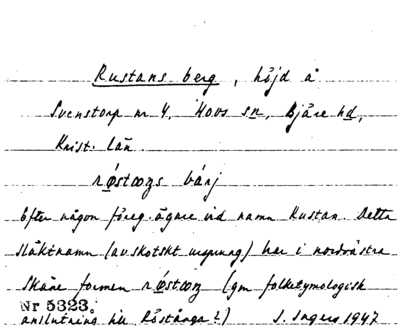 Rustans berg, höjd å
Svenstorp nr 4, Hovs sn, Bjäre hd,
Krist. län.
bárj
Efter någon föreg. ägare vid namn Rustan. Detta
släktnamn (av skotskt ursprung) har i nordvästra
Skåne formen (gm folketymologisk
Nr 5323.
anslutning till Röstånga?) S. Ingers 1947